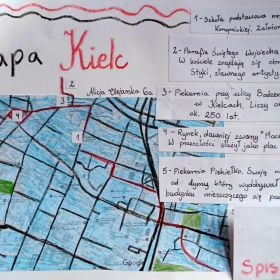 apa Kielc
Alicja Olejarska 6a
1- Szkoła podstawowa
Konopnickiej. Założona
2- Parafia Świętego Wojciecha
W kościele znajdują się
Styki, sławnego artysty
3- Piekarnia przy ulicy
w Kielcach. Liczy
ok. 250 lat.
4- Rynek, dawniej zwany "Plac
W przeszłości służył jako plac
5- Piekarnia Piekiełko. Swoją
od dymu, który wydobywał
budynku mieszczącego się pod
2
3
4
1
5
Google
Spis